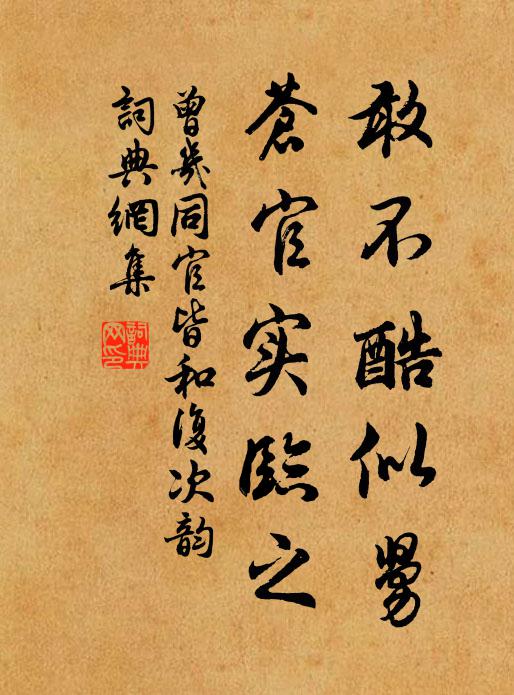 敢不酷似舅
蒼官实臨之
曾幾同官皆和復次韵
詞典網集
詞典网印